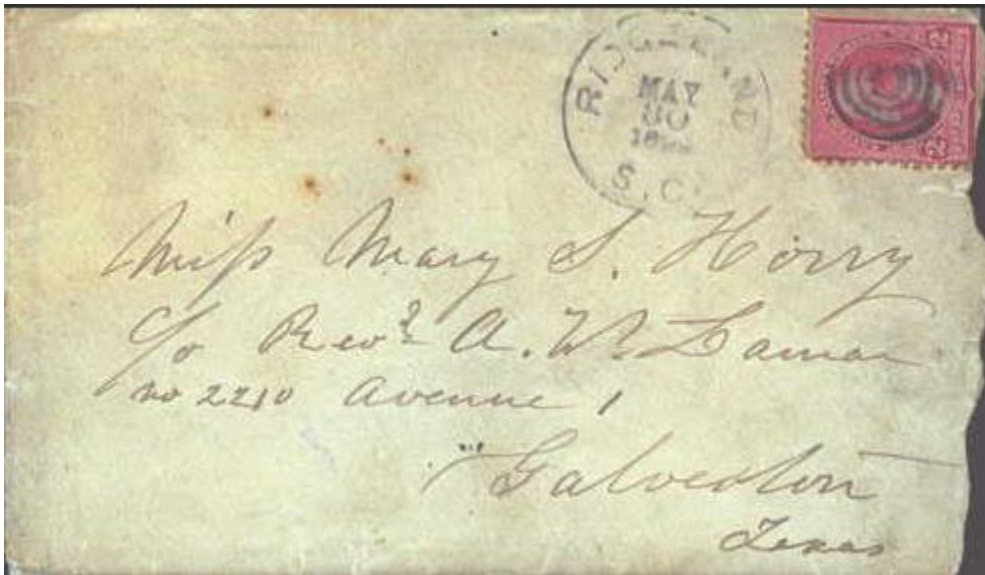 RIDGELAND
MAY
30
S.C.
2 2
Miss Mary S. Horry
c/o Revd A. W. Lamar
No 2210 Avenue I
Galveston
Texas